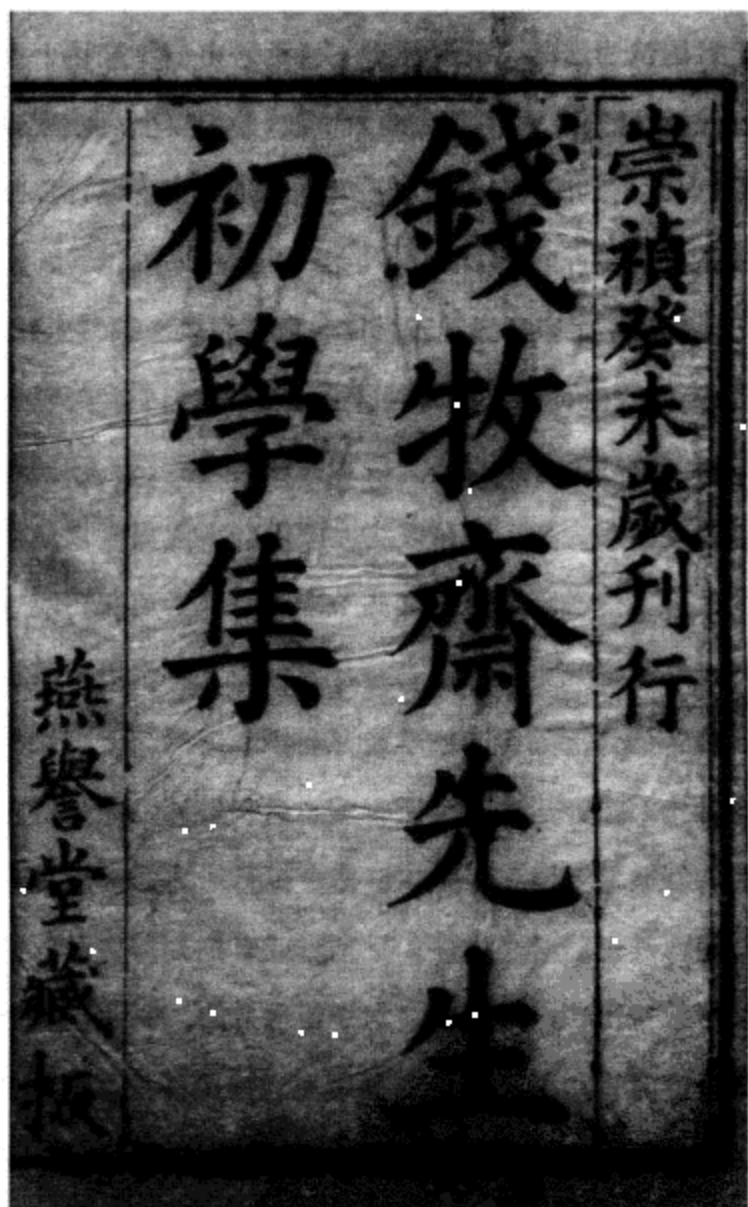 崇禎癸未歲刊行
錢牧齋先生
初學集
燕譽堂藏板